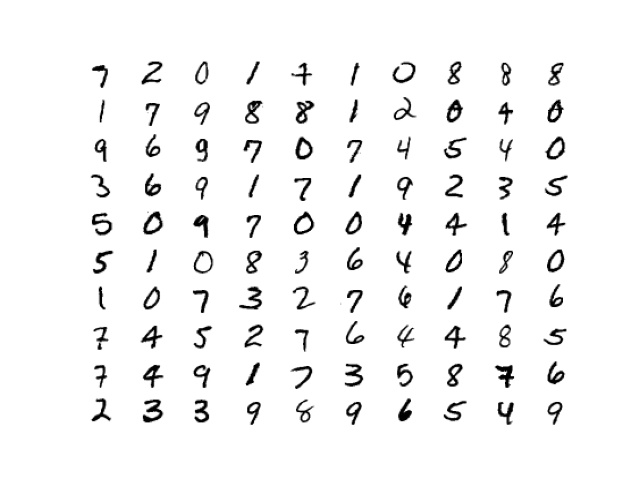 7 2 0 1 7 1 0 8 8 8
1 7 9 8 8 1 2 0 4 0
9 6 9 7 0 7 4 5 4 0
3 6 9 1 7 1 9 2 3 5
5 0 9 7 0 0 4 4 1 4
5 1 0 8 3 6 4 0 8 0
1 0 7 3 2 7 6 1 7 6
7 4 5 2 7 6 4 4 8 5
7 4 9 1 7 3 5 8 7 6
2 3 3 9 8 9 6 5 4 9